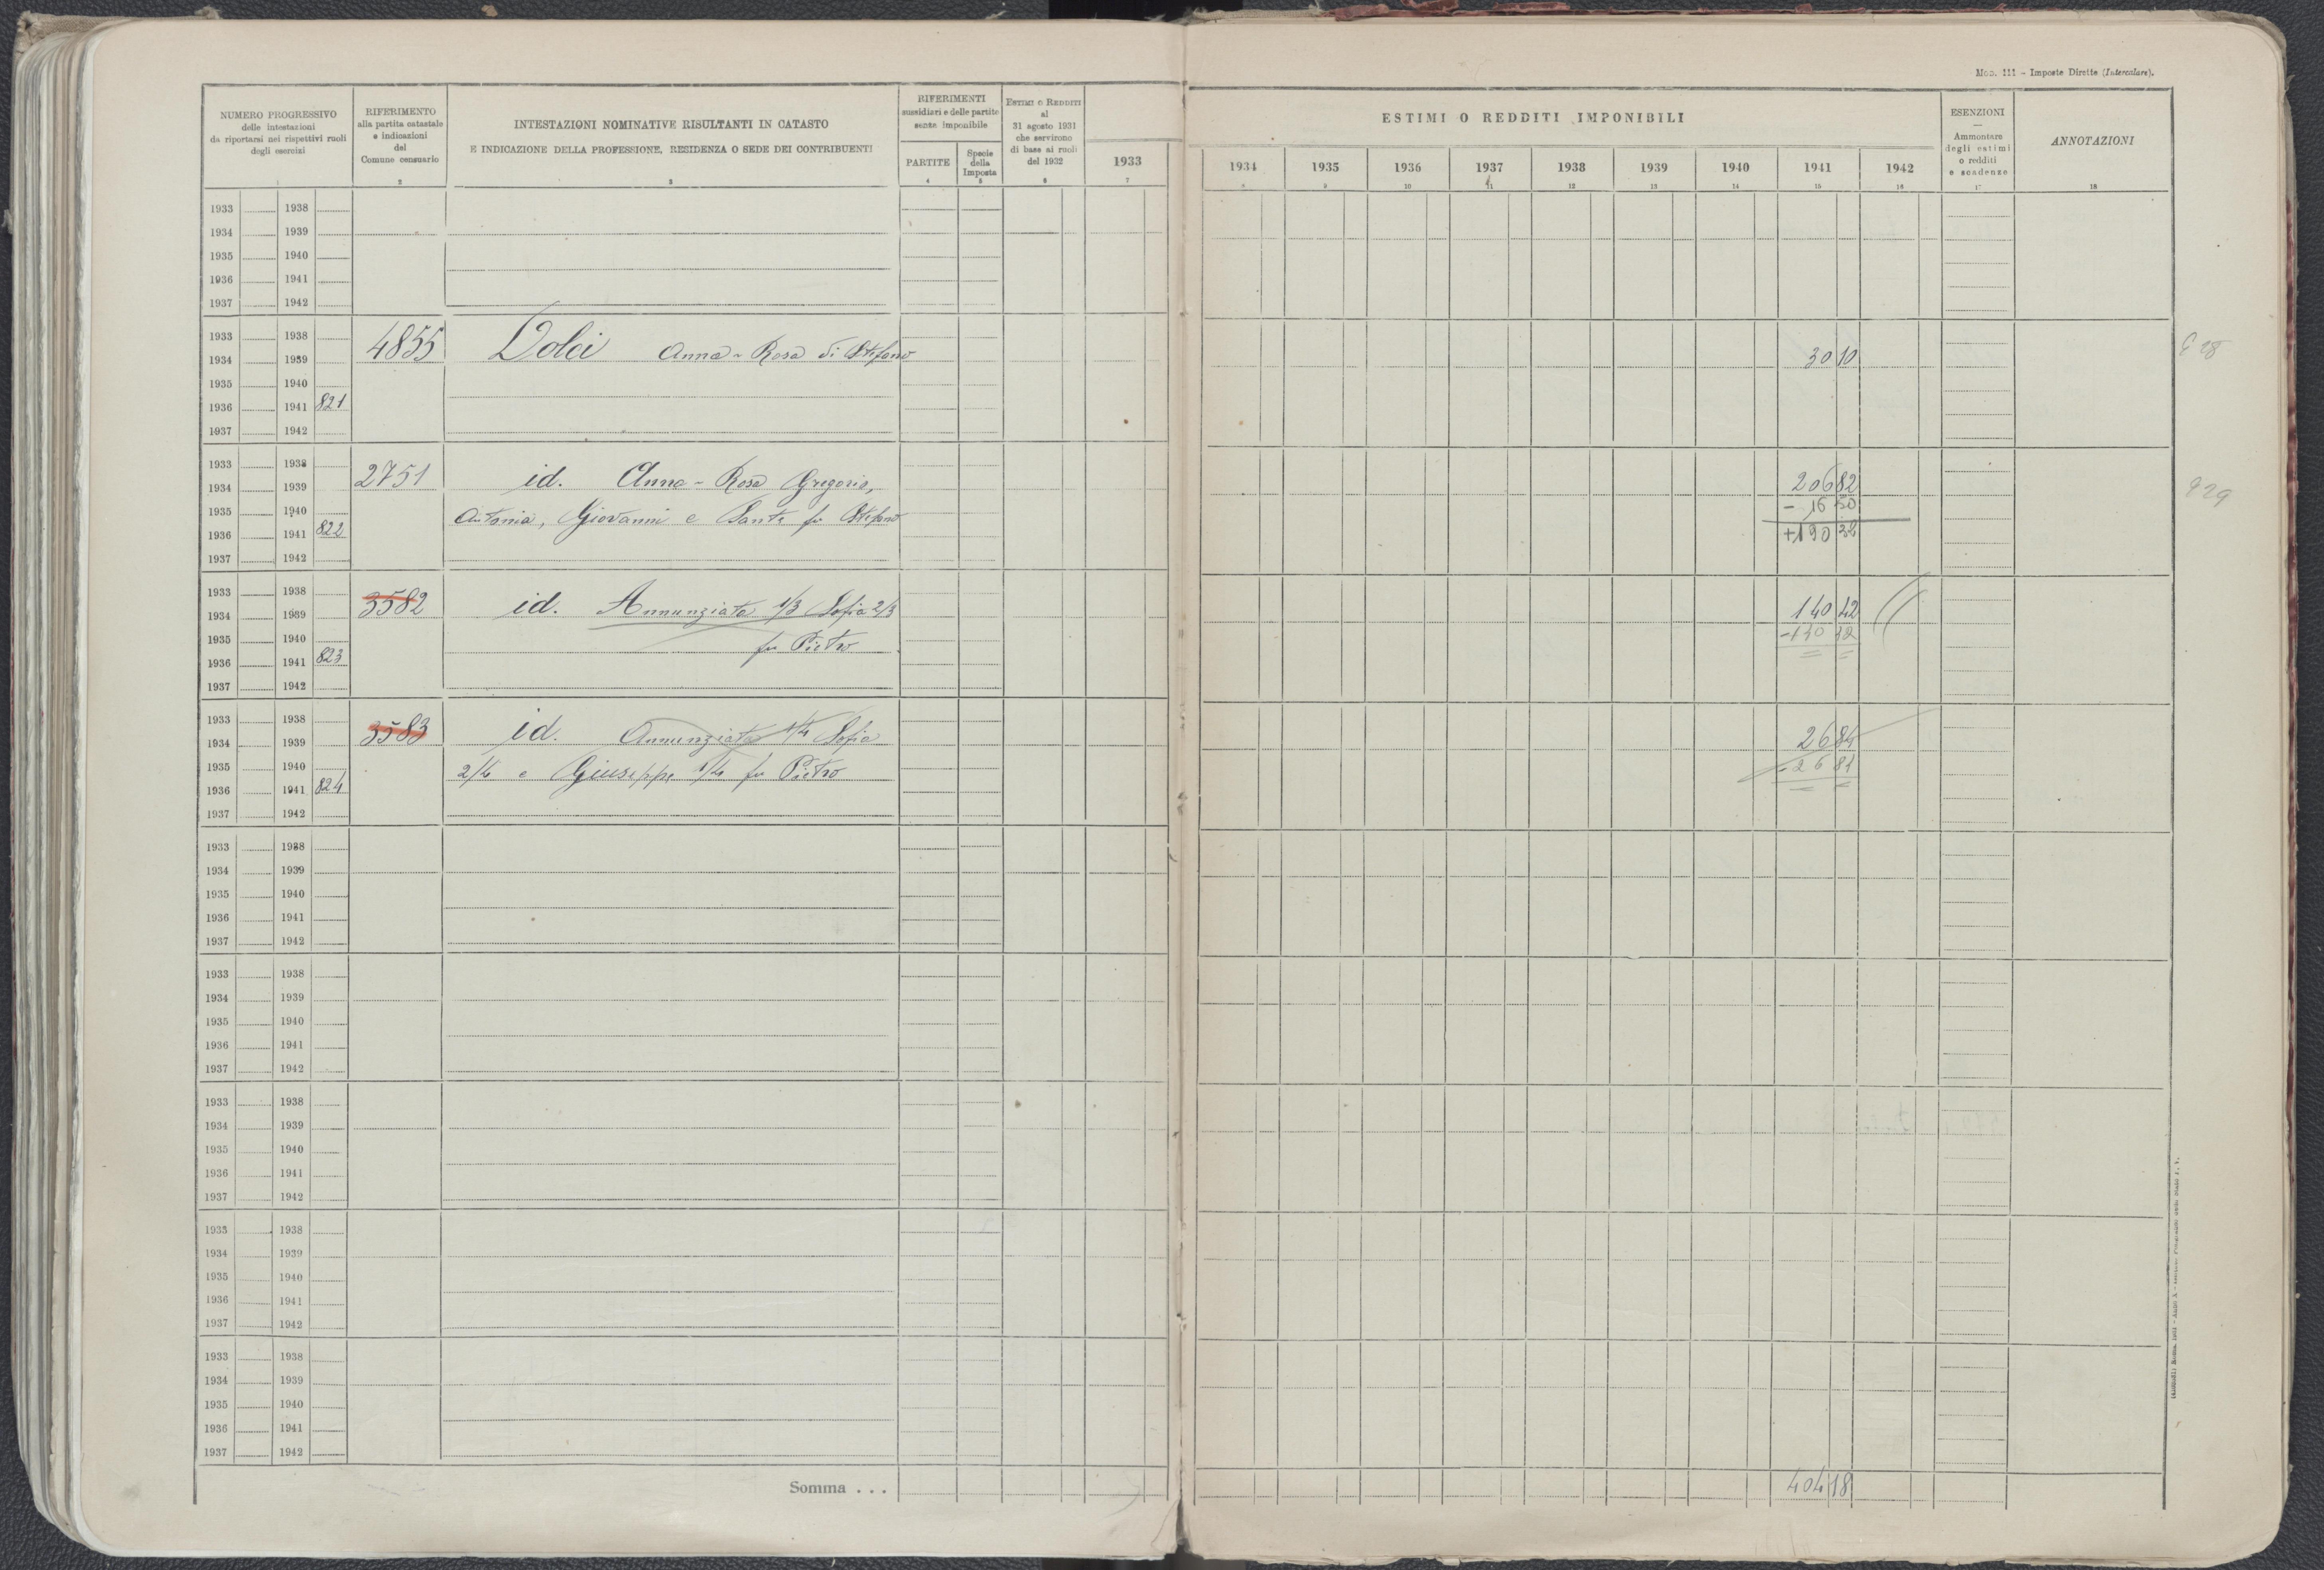 Mod. 111 - Imposte Dirette (Intercalare).
NUMERO PROGRESSIVO
delle intestazioni
da riportarsi nei rispettivi ruoli
degli esercizi
1
RIFERIMENTO
alla partita catastale
e indicazioni
del
Comune censuario
2
INTESTAZIONI NOMINATIVE RISULTANTI IN CATASTO
E INDICAZIONE DELLA PROFESSIONE, RESIDENZA O SEDE DEI CONTRIBUENTI
3
RIFERIMENTI
sussidiari e delle partite
senza imponibile
PARTITE
4
Specie
della
Imposta
5
ESTIMI O REDDITI
al
31 agosto 1931
che servirono
di base ai ruoli
del 1932
6
ESTIMI O REDDITI IMPONIBILI
1933 1934 1935 1936 1937 1938 1939 1940 1941 1942
7 8 9 10 11 12 13 14 15 16
ESENZIONI
Ammontare
degli estimi
o redditi
e scadenze
17
ANNOTAZIONI
18
1933 1938
1934 1939
1935 1940
1936 1941
1937 1942
1933 1938
4855 Dolci Anna - Rosa di Stefano 30 10
1934 1939
1935 1940
1936 1941 821
1937 1942
1933 1938
2751 id. Anna - Rosa Gregorio, 206 82
1934 1939
1935 1940
Antonia, Giovanni e Sante fu Stefano - 16 50
1936 1941 822
+190 32
1937 1942
1933 1938
3582 id. Annunziata 1/3 Sofia 2/3 140 42
1934 1939
1935 1940
fu Pietro -140 42
1936 1941 823
1937 1942
1933 1938
3583 id. Annunziata 1/4 Sofia 26 84
1934 1939
1935 1940
2/4 e Giuseppe 1/4 fu Pietro - 26 84
1936 1941 824
1937 1942
1933 1938
1934 1939
1935 1940
1936 1941
1937 1942
1933 1938
1934 1939
1935 1940
1936 1941
1937 1942
1933 1938
1934 1939
1935 1940
1936 1941
1937 1942
1933 1938
1934 1939
1935 1940
1936 1941
1937 1942
1933 1938
1934 1939
1935 1940
1936 1941
1937 1942
Somma . . . 404 18